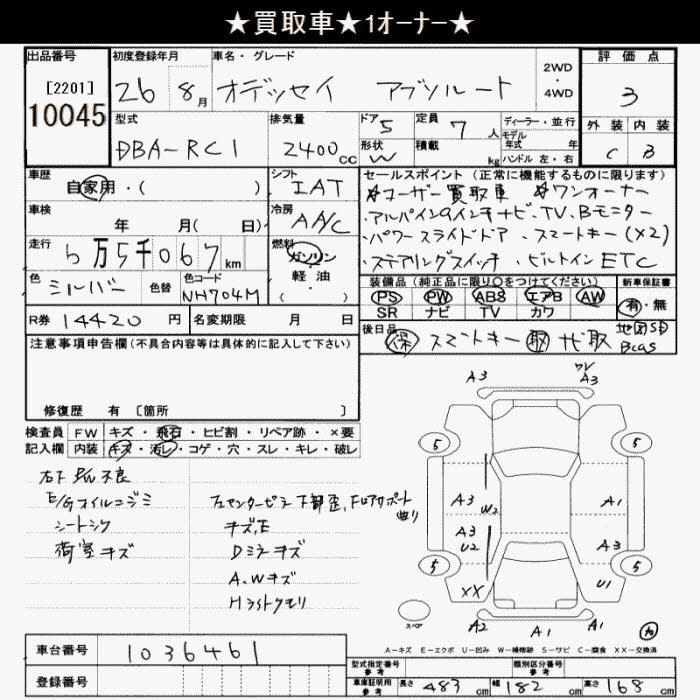 ★買取車★1オーナー★
出品番号
[2201]
10045
初度登録年月
26 8月
車名・グレード
オデッセイ アブソルート
2WD
・
4WD
評価点
3
外装 内装
C B
型式
DBA-RC1
排気量
2400cc
ドア
5
形状
W
定員
7人
積載
kg
ディーラー・並行
モデル
年式 年
ハンドル 左・右
車歴
自家用・( )
シフト
IAT
車検
年 月(日)
冷房
AAC
走行
5万5千067km
燃料
ガソリン
軽・油
・( )
色
シルバー
色替
色コード
NH704M
R券 14420円
名変期限 月 日
セールスポイント(正常に機能するものに限ります)
☆ユーザー買取車 ☆ワンオーナー
・アルパイン9インチナビ、TV、Bモニター
・パワースライドドア ・スマートキー(×2)
・ステアリングスイッチ ・ビルトインETC
装備品(純正品に限り○をつけてください)
PS PW ABS エアB AW
SR ナビ TV カワ
新車保証書
有・無
後日品
保 スマートキー 取 ナビ取
地図SD
Bcas
注意事項申告欄(不具合内容等は具体的に記入して下さい)
修復歴 有 [箇所 ]
検査員
記入欄
FW キズ・飛石・ヒビ割・リペア跡・×要
内装 キズ・汚レ・コゲ・穴・スレ・キレ・破レ
右下 不良
E/Gオイルニジミ
シートシワ
荷室キズ
左センターピラー下部歪、Fロアサポート
曲り
キズ,E
Dミラーキズ
A.Wキズ
Hライトクモリ
A3
A3
5
5
A3
W2
A1
A3
U2
A3
5
5
XX
U1
スペア
A2
A1
A1
A-キズ E-エクボ U-凹み W-補修跡 S-サビ C-腐食 XX-交換済
車台番号 1036461
登録番号
型式指定番号
参考
類別区分番号
参考
車庫証明用
参考
長さ 483cm
幅 182cm
高さ 168cm